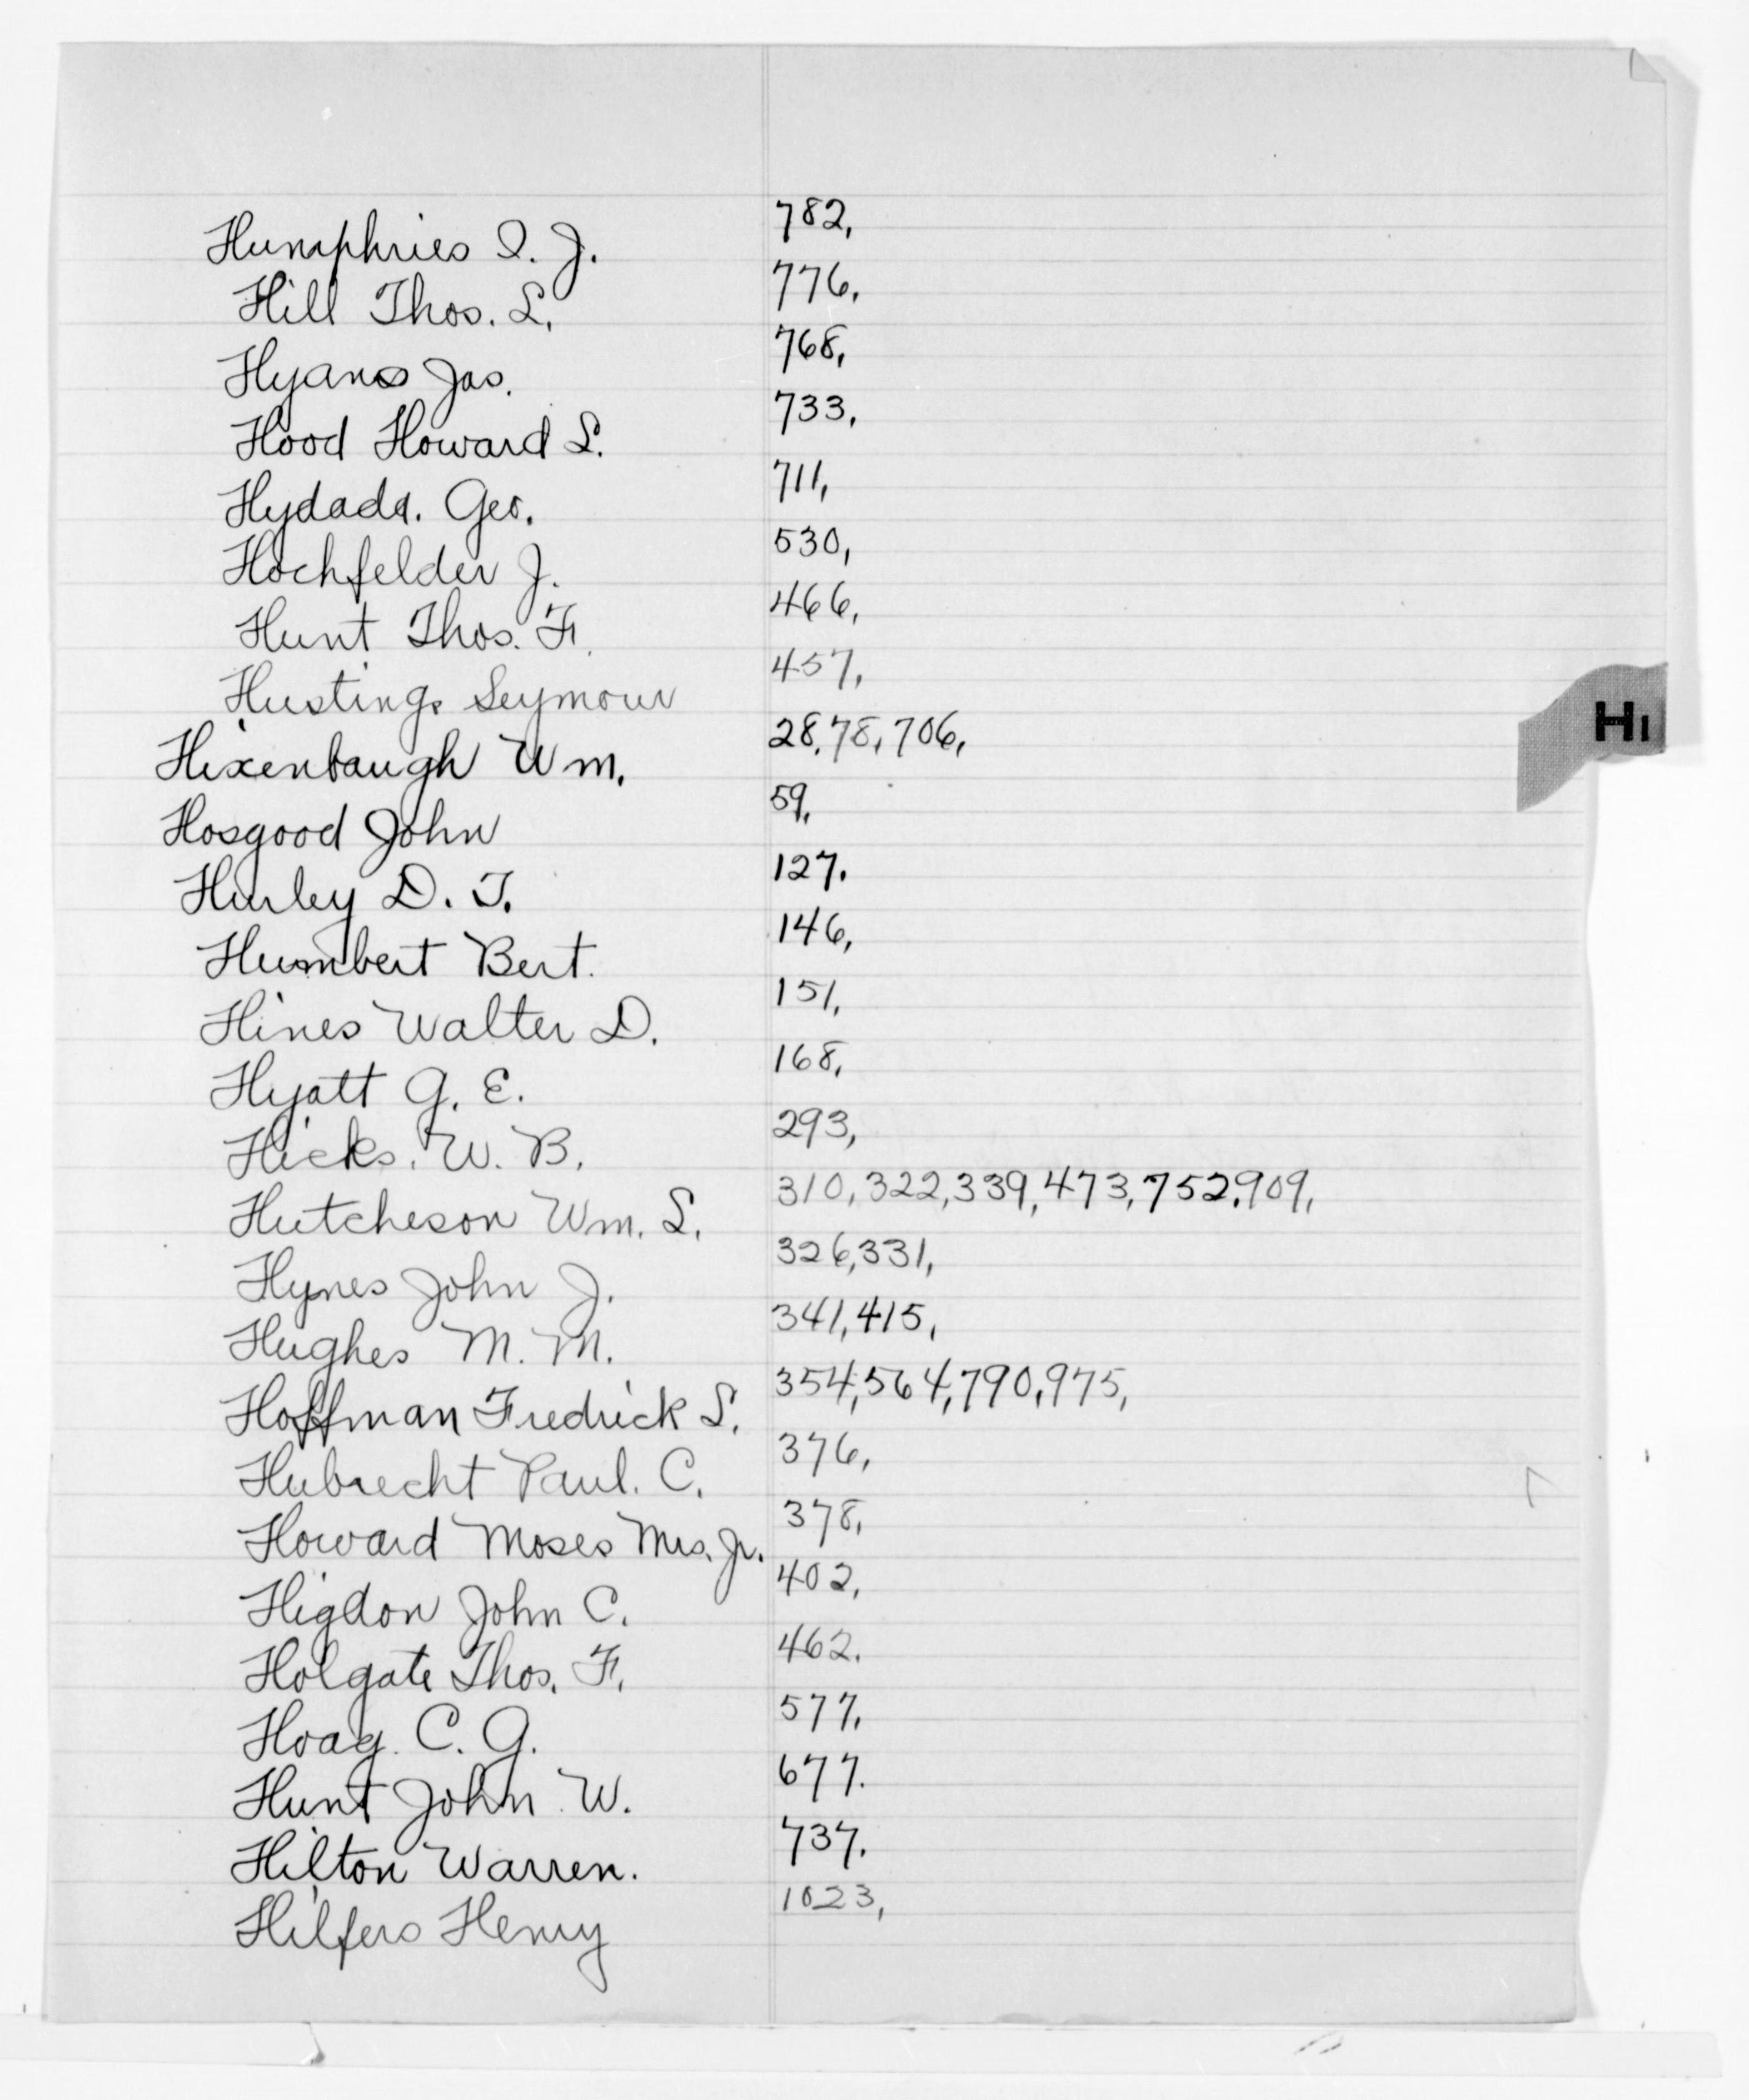 Humphries I. J. 782,
Hill Thos. L. 776,
Hyans Jas. 768,
Hood Howard L. 733,
Hydada. Geo. 711,
Hochfelder J. 530,
Hunt Thos. F. 466,
Hustings Seymour 457,
Hixenbaugh Wm. 28,78,706,
Hosgood John 59,
Hurley D. T. 127.
Humbert Bert. 146,
Hines Walter D. 151,
Hyatt G. E. 168,
Hicks. W. B. 293,
Hutcheson Wm. L. 310,322,339,473,752,909,
Hynes John J. 326,331,
Hughes M. M. 341,415,
Hoffman Fredrick L. 354,564,790,975,
Hubrecht Paul. C. 376,
Howard Moses Mrs. Jr. 378,
Higdon John C. 402,
Holgate Thos. F. 462.
Hoag. C. G. 577,
Hunt John W. 677.
Hilton Warren. 737.
Hilfers Henry 1023,
Hi